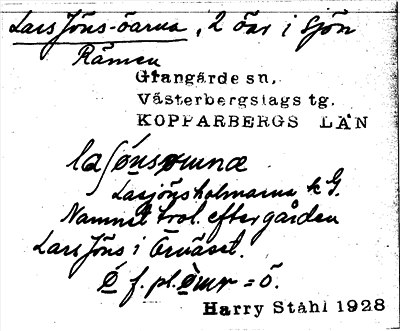 Lars Jöns-öarna, 2 öar i sjön
Rämen
Grangärde sn,
Västerbergslags tg.
KOPPARBERGS LÄN
Lasjönsholmarna k G.
Namnet trol. efter gården
Lars Jöns i Örväset.
f. pl. = ö.
Harry Ståhl 1928